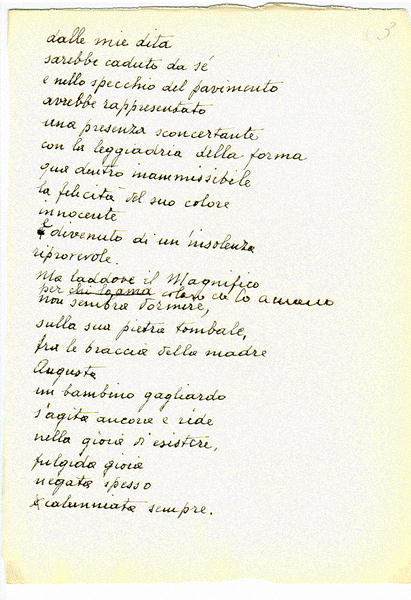 3
dalle mie dita
sarebbe caduto da sé
e nello specchio del pavimento
avrebbe rappresentato
una presenza sconcertante
con la leggiadria della forma
qua dentro inammissibile
la felicità del suo colore
innocente
È divenuto di un'insolenza
riprorevole.
Ma laddove il Magnifico
per chi lo ama coloro che lo amano
non sembra dormire,
sulla sua pietra tombale,
fra le braccia della madre
Augusta
un bambino gagliardo
s'agita ancora e ride
nella gioia di esistere,
fulgida gioia
negata spesso
calunniata sempre.